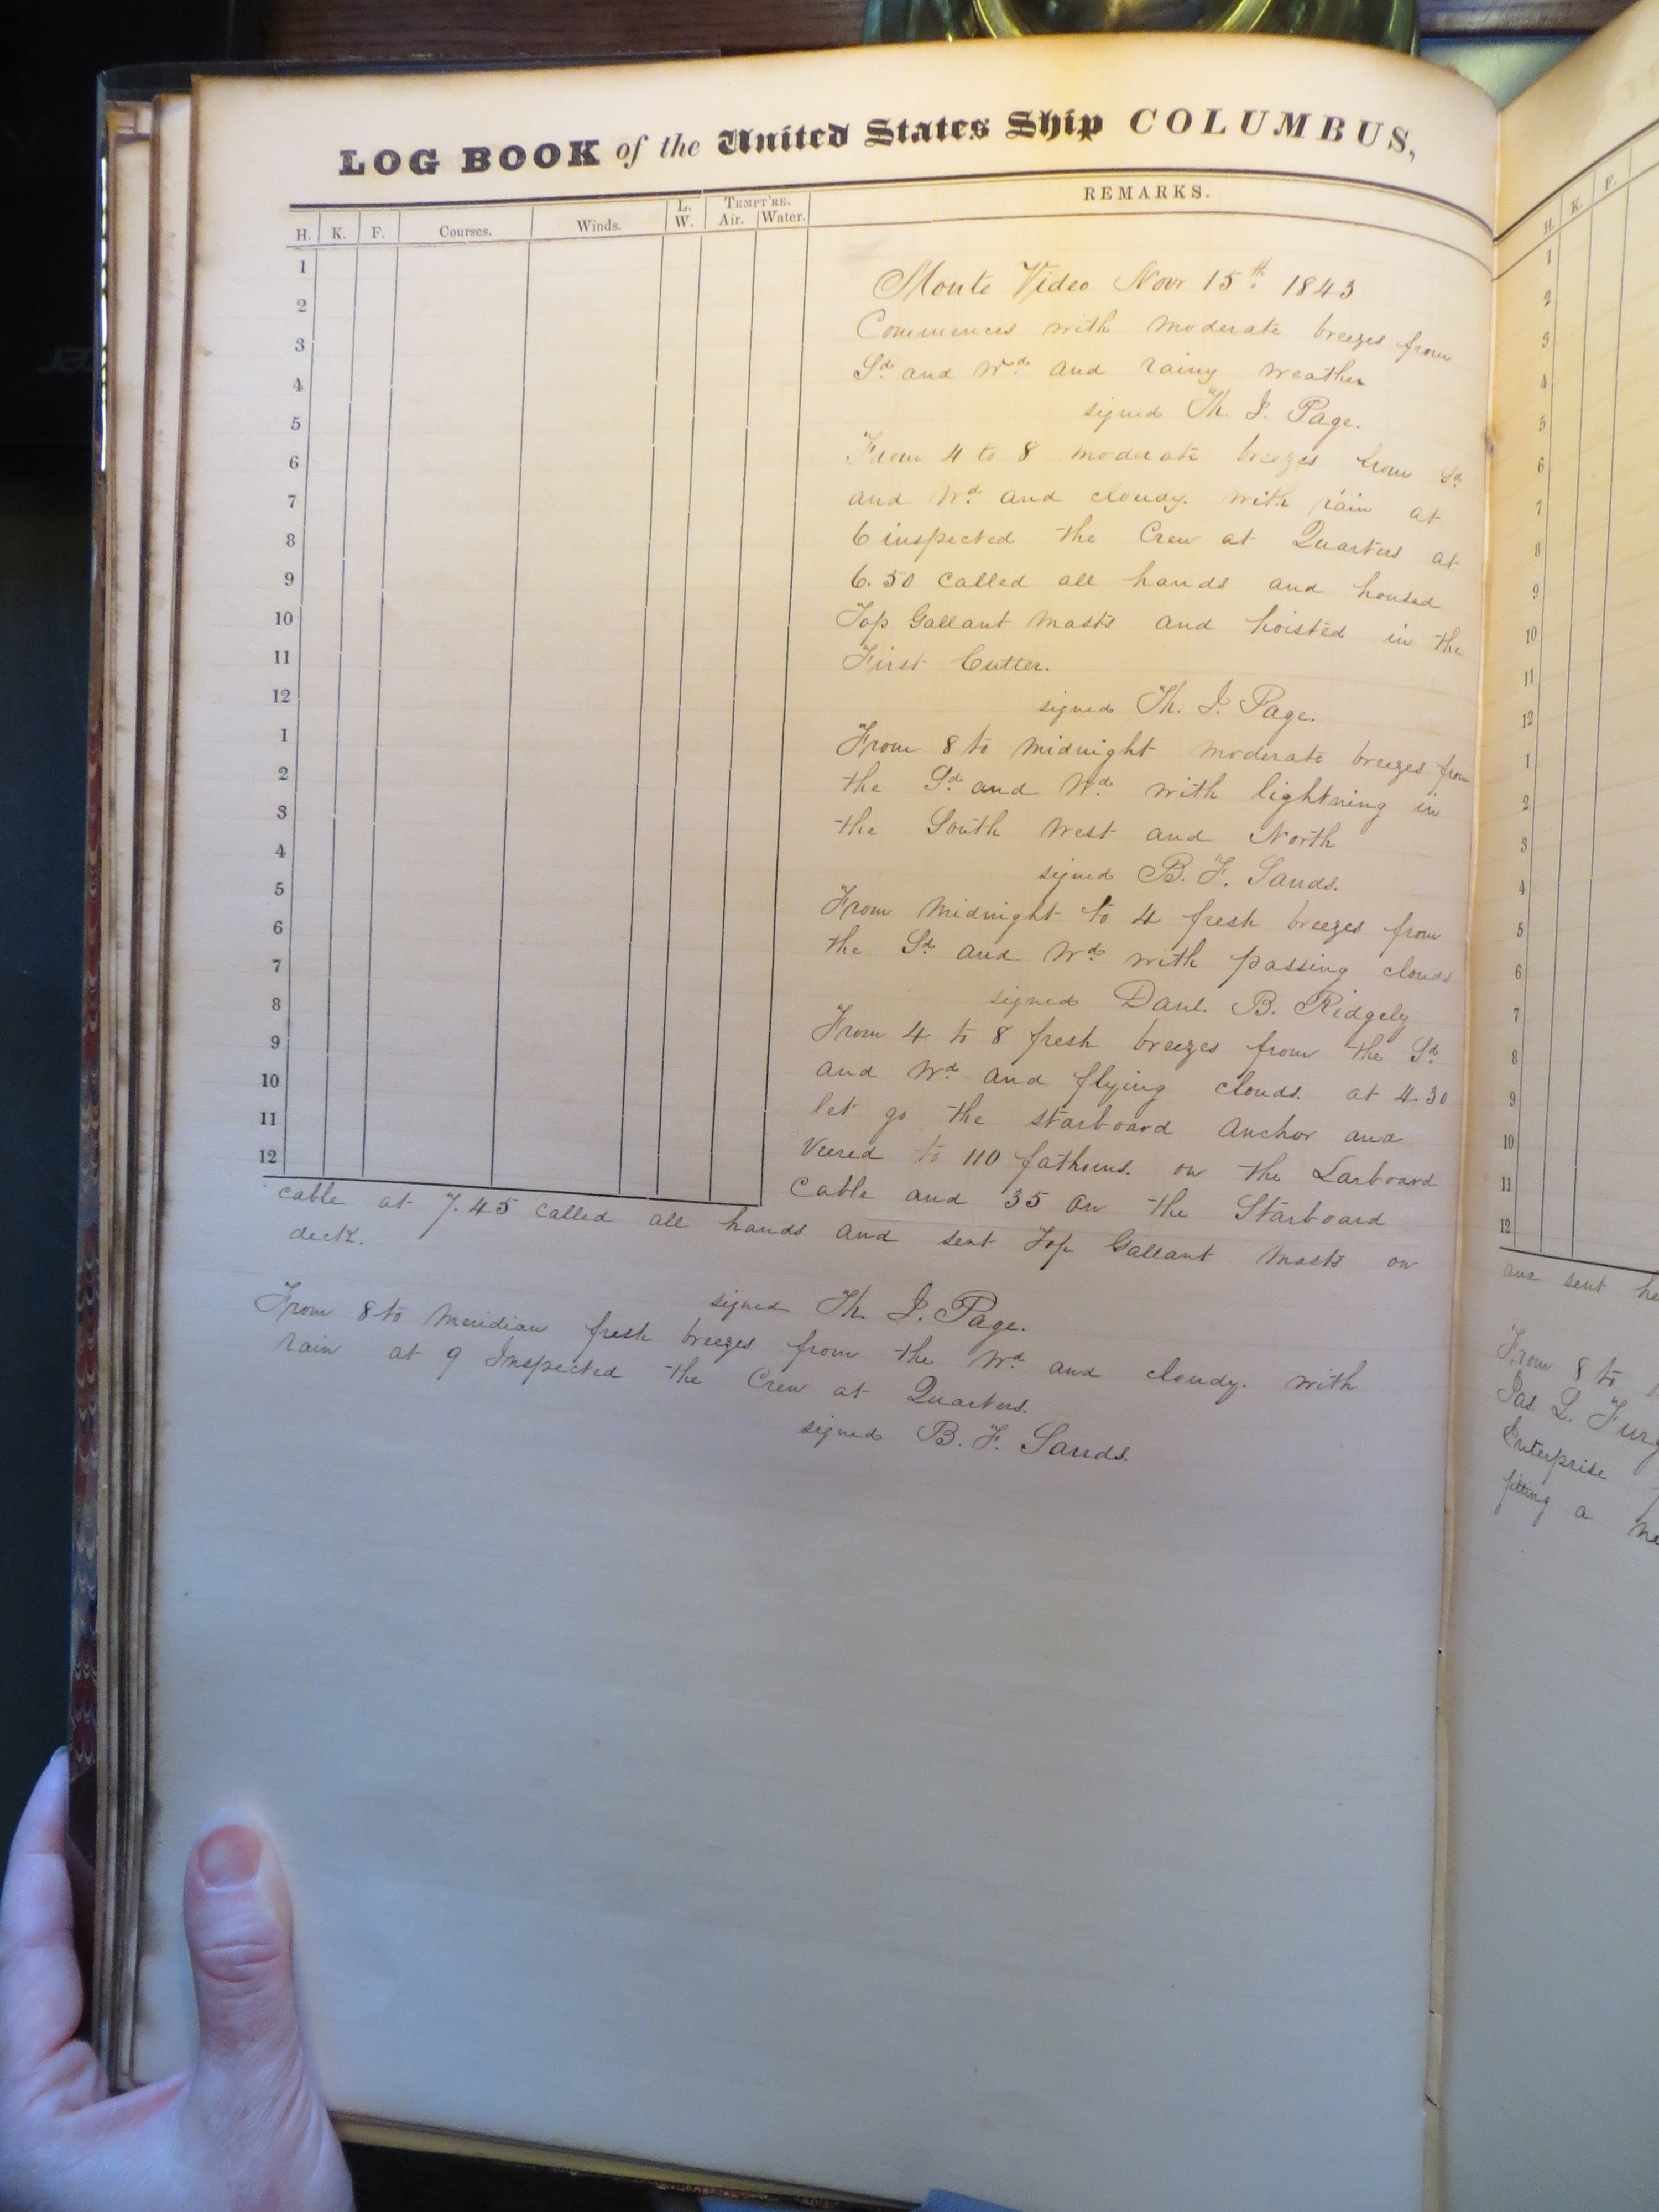 LOG BOOK of the United States Ship COLUMBUS,
H. K. F. Courses. Winds. L. W. TEMPT'RE. Air. Water. REMARKS.
1
2
3
4
5
6
7
8
9
10
11
12
1
2
3
4
5
6
7
8
9
10
11
12
Monte Video Novr 15th 1843
Commences with moderate breezes from
Sd and Wd and rainy weather
signed Th. J. Page.
From 4 to 8 moderate breezes from Sd
and Wd and cloudy. with rain at
6 inspected the Crew at Quarters at
6.50 called all hands and housed
Top Gallant Masts and hoisted in the
First Cutter.
signed Th. J. Page.
From 8 to midnight moderate breezes from
the Sd and Wd with lightning in
the South West and North
signed B. F. Sands.
From Midnight to 4 fresh breezes from
the Sd and Wd with passing clouds
signed Danl. B. Ridgely
From 4 to 8 fresh breezes from the Sd
and Wd and flying clouds. at 4.30
let go the starboard Anchor and
Veered to 110 fathoms. on the Larboard
Cable and 35 on the Starboard
cable at 7.45 called all hands and sent Top Gallant Masts on
deck.
signed Th. J. Page.
From 8 to Meridian fresh breezes from the Wd and cloudy. with
rain at 9 Inspected the Crew at Quarters.
signed B. F. Sands.
H. K. F.
1
2
3
4
5
6
7
8
9
10
11
12
1
2
3
4
5
6
7
8
9
10
11
12
and sent
From 8 to
Jas. L.
Enterprise
fitting a